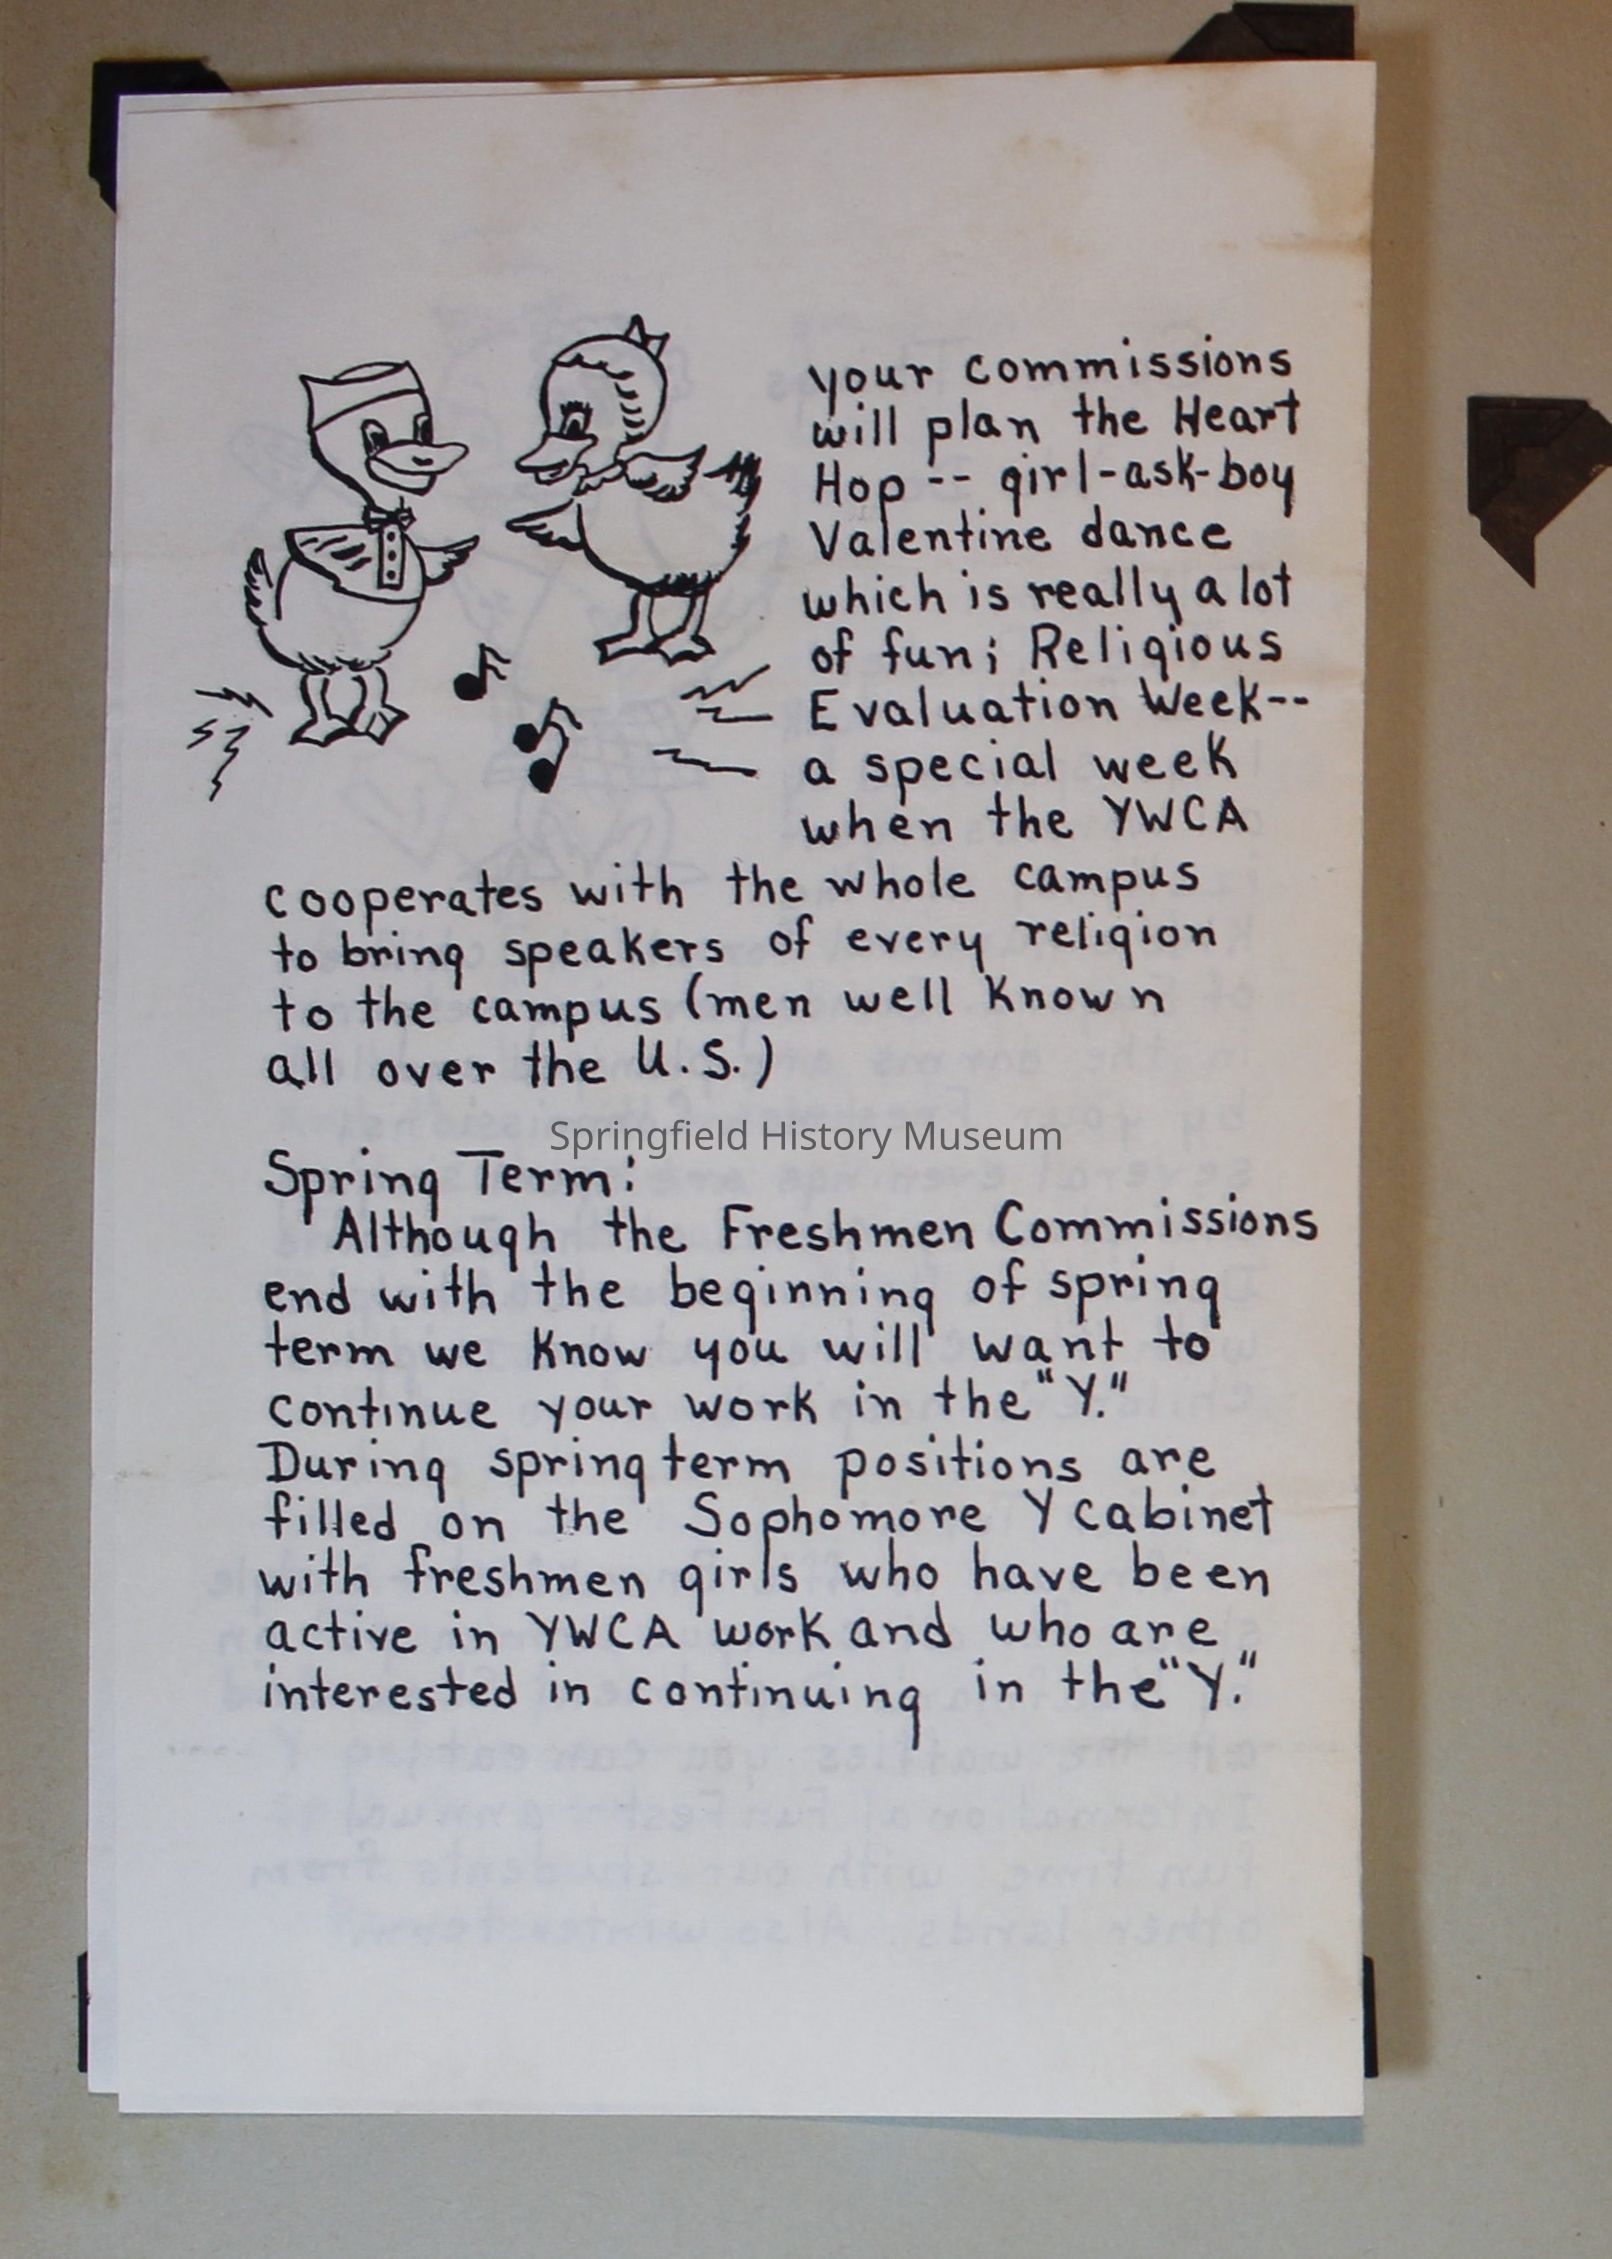 your commissions
will plan the Heart
Hop -- girl-ask-boy
Valentine dance
which is really a lot
of fun; Religious
Evaluation Week--
a special week
when the YWCA
cooperates with the whole campus
to bring speakers of every religion
to the campus (men well known
all over the U.S.)
Springfield History Museum
Spring Term:
Although the Freshmen Commissions
end with the beginning of spring
term we know you will want to
continue your work in the "Y."
During spring term positions are
filled on the Sophomore Y cabinet
with freshmen girls who have been
active in YWCA work and who are
interested in continuing in the "Y."